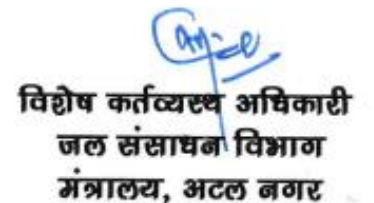 विशेष कर्तव्यस्थ अधिकारी
जल संसाधन विभाग
मंत्रालय, अटल नगर